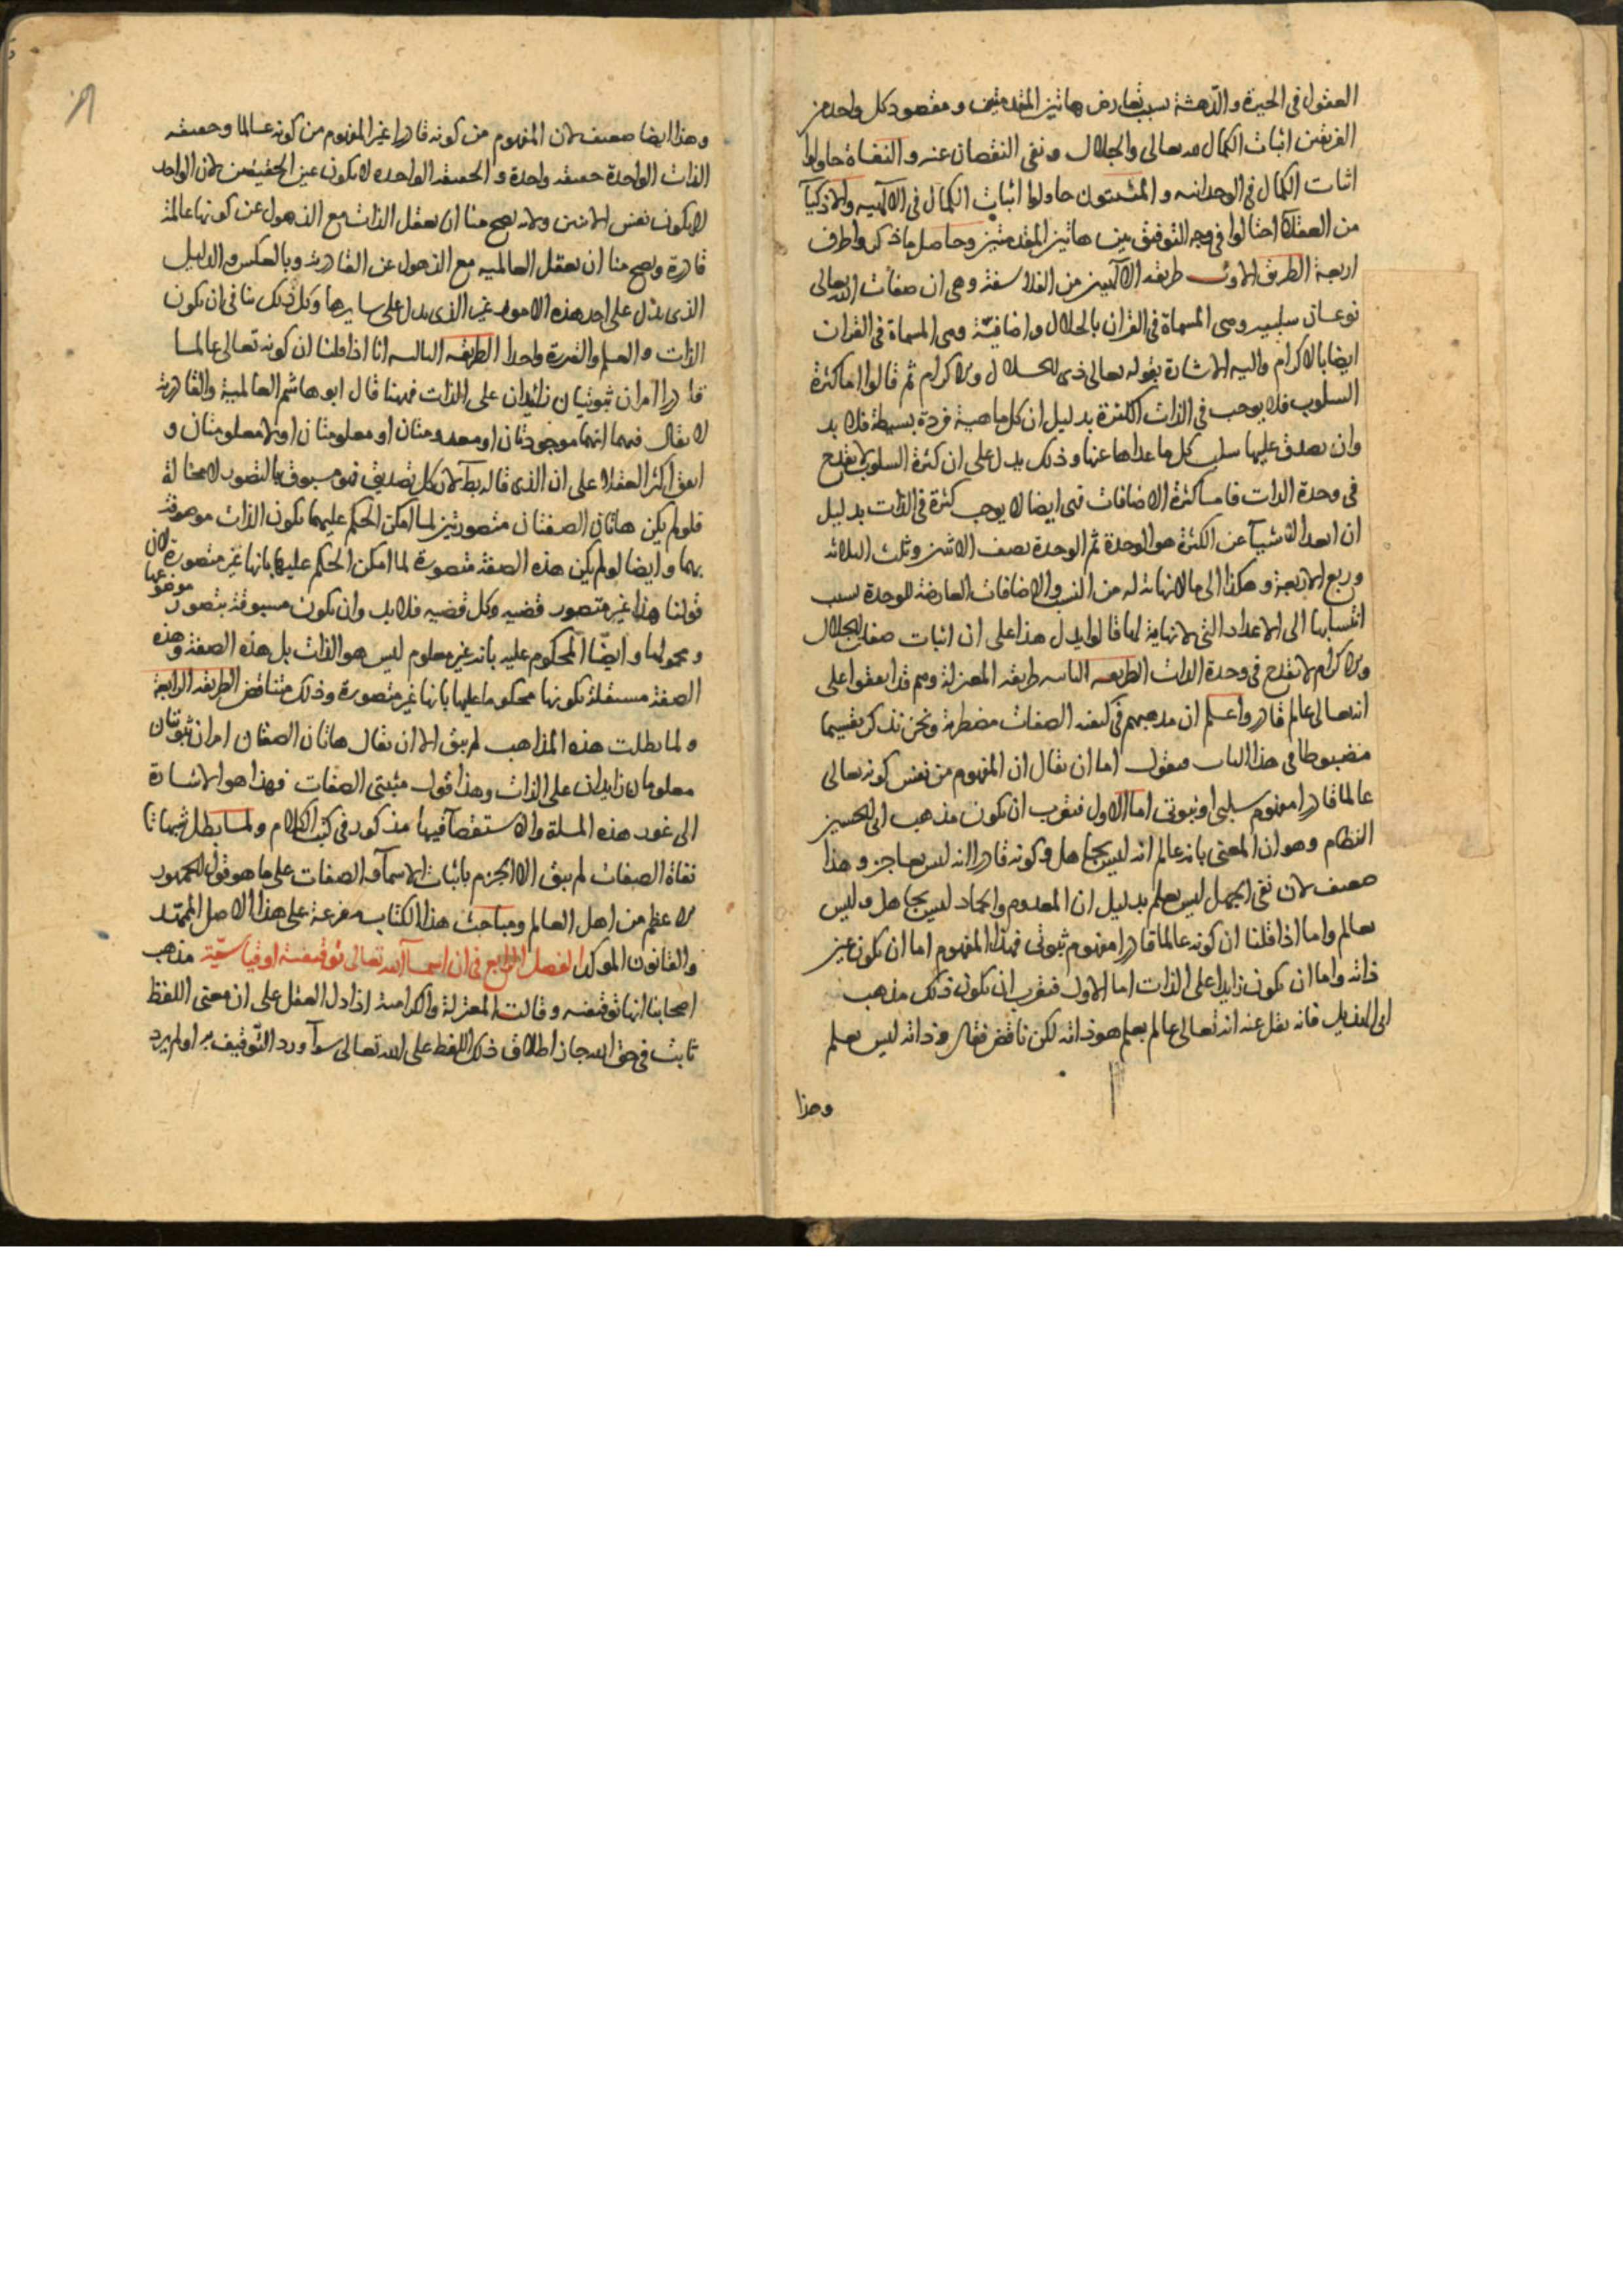 العقول في الحيرة والدهشة بسبب تعارض هاتين المقدمتين ومقصود كل واحد من
الفريقين اثبات الكمال لله تعالى والجلال ونفي النقصان عنه والنفاة حاولوا
اثبات الكمال في الوحدانيه والمثبتون حاولوا اثبات الكمال في الالهيه والاذكيآ
من العقلآ احتالوا في وجه التوفيق بين هاتين المقدمتين وحاصل ما ذكروا طرف
اربعة الطريق الاول طريقه الالهيين من الفلاسفة وهي ان صفات الله تعالى
نوعان سلبيه وهي المسماة في القران بالجلال واضافيّة وهي المسماة في القران
ايضا بالاكرام واليه الاشارة بقوله تعالى ذي الجلال والاكرام ثم قالوا اما كثرة
السلوب فلا يوجب في الذات الكثرة بدليل ان كل ماهية فردة بسيطة فلا بد
وان يصدق عليها سلب كل ما عداها عنها وذلك يدل على ان كثرة السلوب لا يقدح
في وحدة الذات فاما كثرة الاضافات فهي ايضا لا يوجب كثرة في الذات بدليل
ان ابعد الاشيآ عن الكثرة هو الوحدة ثم الوحدة نصف الاثنين وثلث الثلاثه
وربع الاربعة وهكذا الى ما لا نهاية له من النسب والاضافات العارضة للوحدة بسبب
انتسابها الى الاعداد التي لا نهاية لها قالوا يدل هذا على ان اثبات صفات الجلال
والاكرام لا يقدح في وحدة الذات الطريقه الثانيه طريقه المعتزلة وهم قد اتفقوا على
انه تعالى عالم قادر واعلم ان مذهبهم في كيفيه الصفات مضطربة ونحن نذكر تقسيما
مضبوطا في هذا الباب فنقول اما ان يقال ان المفهوم من نفس كونه تعالى
عالما قادرا مفهوم سلبي او ثبوتي اما الاول فيقرب ان يكون مذهب ابي الحسين
النظام وهو ان المعني بانه عالم انه ليس بجاهل وكونه قادرا انه ليس بعاجز وهذا
ضعيف لان نفي الجهل ليس بعلم بدليل ان المعدوم والجماد ليس بجاهل وليس
بعالم واما اذا قلنا ان كونه عالما قادرا مفهوم ثبوتي فهذا المفهوم اما ان يكون عين
ذاته واما ان يكون زايدا على الذات اما الاول فيقرب ان يكون ذلك مذهب
ابي الهذيل فانه نقل عنه انه تعالى عالم بعلم هو ذاته لكن ناقض فقال وذاته ليس بعلم
وهذا
وهذا ايضا ضعيف لان المفهوم من كونه قادرا غير المفهوم من كونه عالما وحقيقه
الذات الواحدة حقيقه واحدة والحقيقه الواحده لا يكون عين الحقيقتين لان الواحد
لا يكون نفس الاثنين ولانه يصح منا ان نعقل الذات مع الذهول عن كونها عالمة
قادرة ويصح منا ان نعقل العالميه مع الذهول عن القادريه وبالعكس والدليل
الذي يدل على احد هذه الامور غير الذي يدل على سايرها وكل ذلك ينافي ان يكون
الذات والعلم والقدرة واحدا الطريقه الثالثه انا اذا قلنا ان كونه تعالى عالما
قادرا امران ثبوتيان زائدان على الذات فههنا قال ابو هاشم العالمية والقادرية
لا يقال فيهما انهما موجودتان او معدومتان او معلومتان او لا معلومتان و
اتفق اكثر العقلآ على ان الذي قاله بط لان كل تصديق فهو مسبوق بالتصور لا محالة
فلو لم يكن هاتان الصفتان متصورتين لما امكن الحكم عليهما بكون الذات موصوفة
بهما وايضا لو لم يكن هذه الصفة متصورة لما امكن الحكم عليها بانها غير متصورة لان
قولنا هذا غير متصور قضيه وكل قضيه فلا بد وان يكون مسبوقة بتصور موضوعها
ومحمولها وايضًا المحكوم عليه بانه غير معلوم ليس هو الذات بل هذه الصفة وهذه
الصفة مستقلة بكونها محكوما عليها بانها غير متصورة وذلك متناقض الطريقه الرابعة
ولما بطلت هذه المذاهب لم يبق الا ان يقال هاتان الصفتان امران ثبوتيان
معلومان زايدان على الذات وهذا قول مثبتي الصفات فهذا هو الاشارة
الى غور هذه المسلة والاستقصآ فيها مذكور في كتب الكلام ولما بطل شبهات
نفاة الصفات لم يبق الا الجزم باثبات الاسمآ والصفات على ما هو قول الجمهور
الاعظم من اهل العالم ومباحث هذا الكتاب مفرعة على هذا الاصل الممهد
والقانون الموكد الفصل الرابع في ان اسمآ الله تعالى توقيفية او قياسيّة مذهب
اصحابنا انها توقيفيه وقالت المعتزلة والكرامية اذا دل العقل على ان معنى اللفظ
ثابت في حق الله جاز اطلاق ذلك اللفظ على الله تعالى سوآ ورد التوقيف به او لم يرد